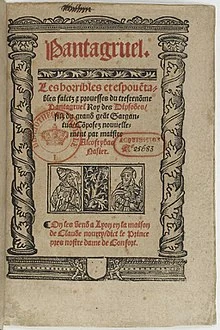 Pantagruel.
Les horribles et espouẽta-
bles faictz ⁊ prouesses du tresrenõme
Pantagruel Roy des Dipsodes,
filz du grand geãt Gargan-
tua, Cõposez nouvelle-
ment par maistre
Alcofrybas
Nasier.
25683
On les vend a Lyon en la maison
de Claude nourry, dict le Prince
pres nostre dame de Confort.